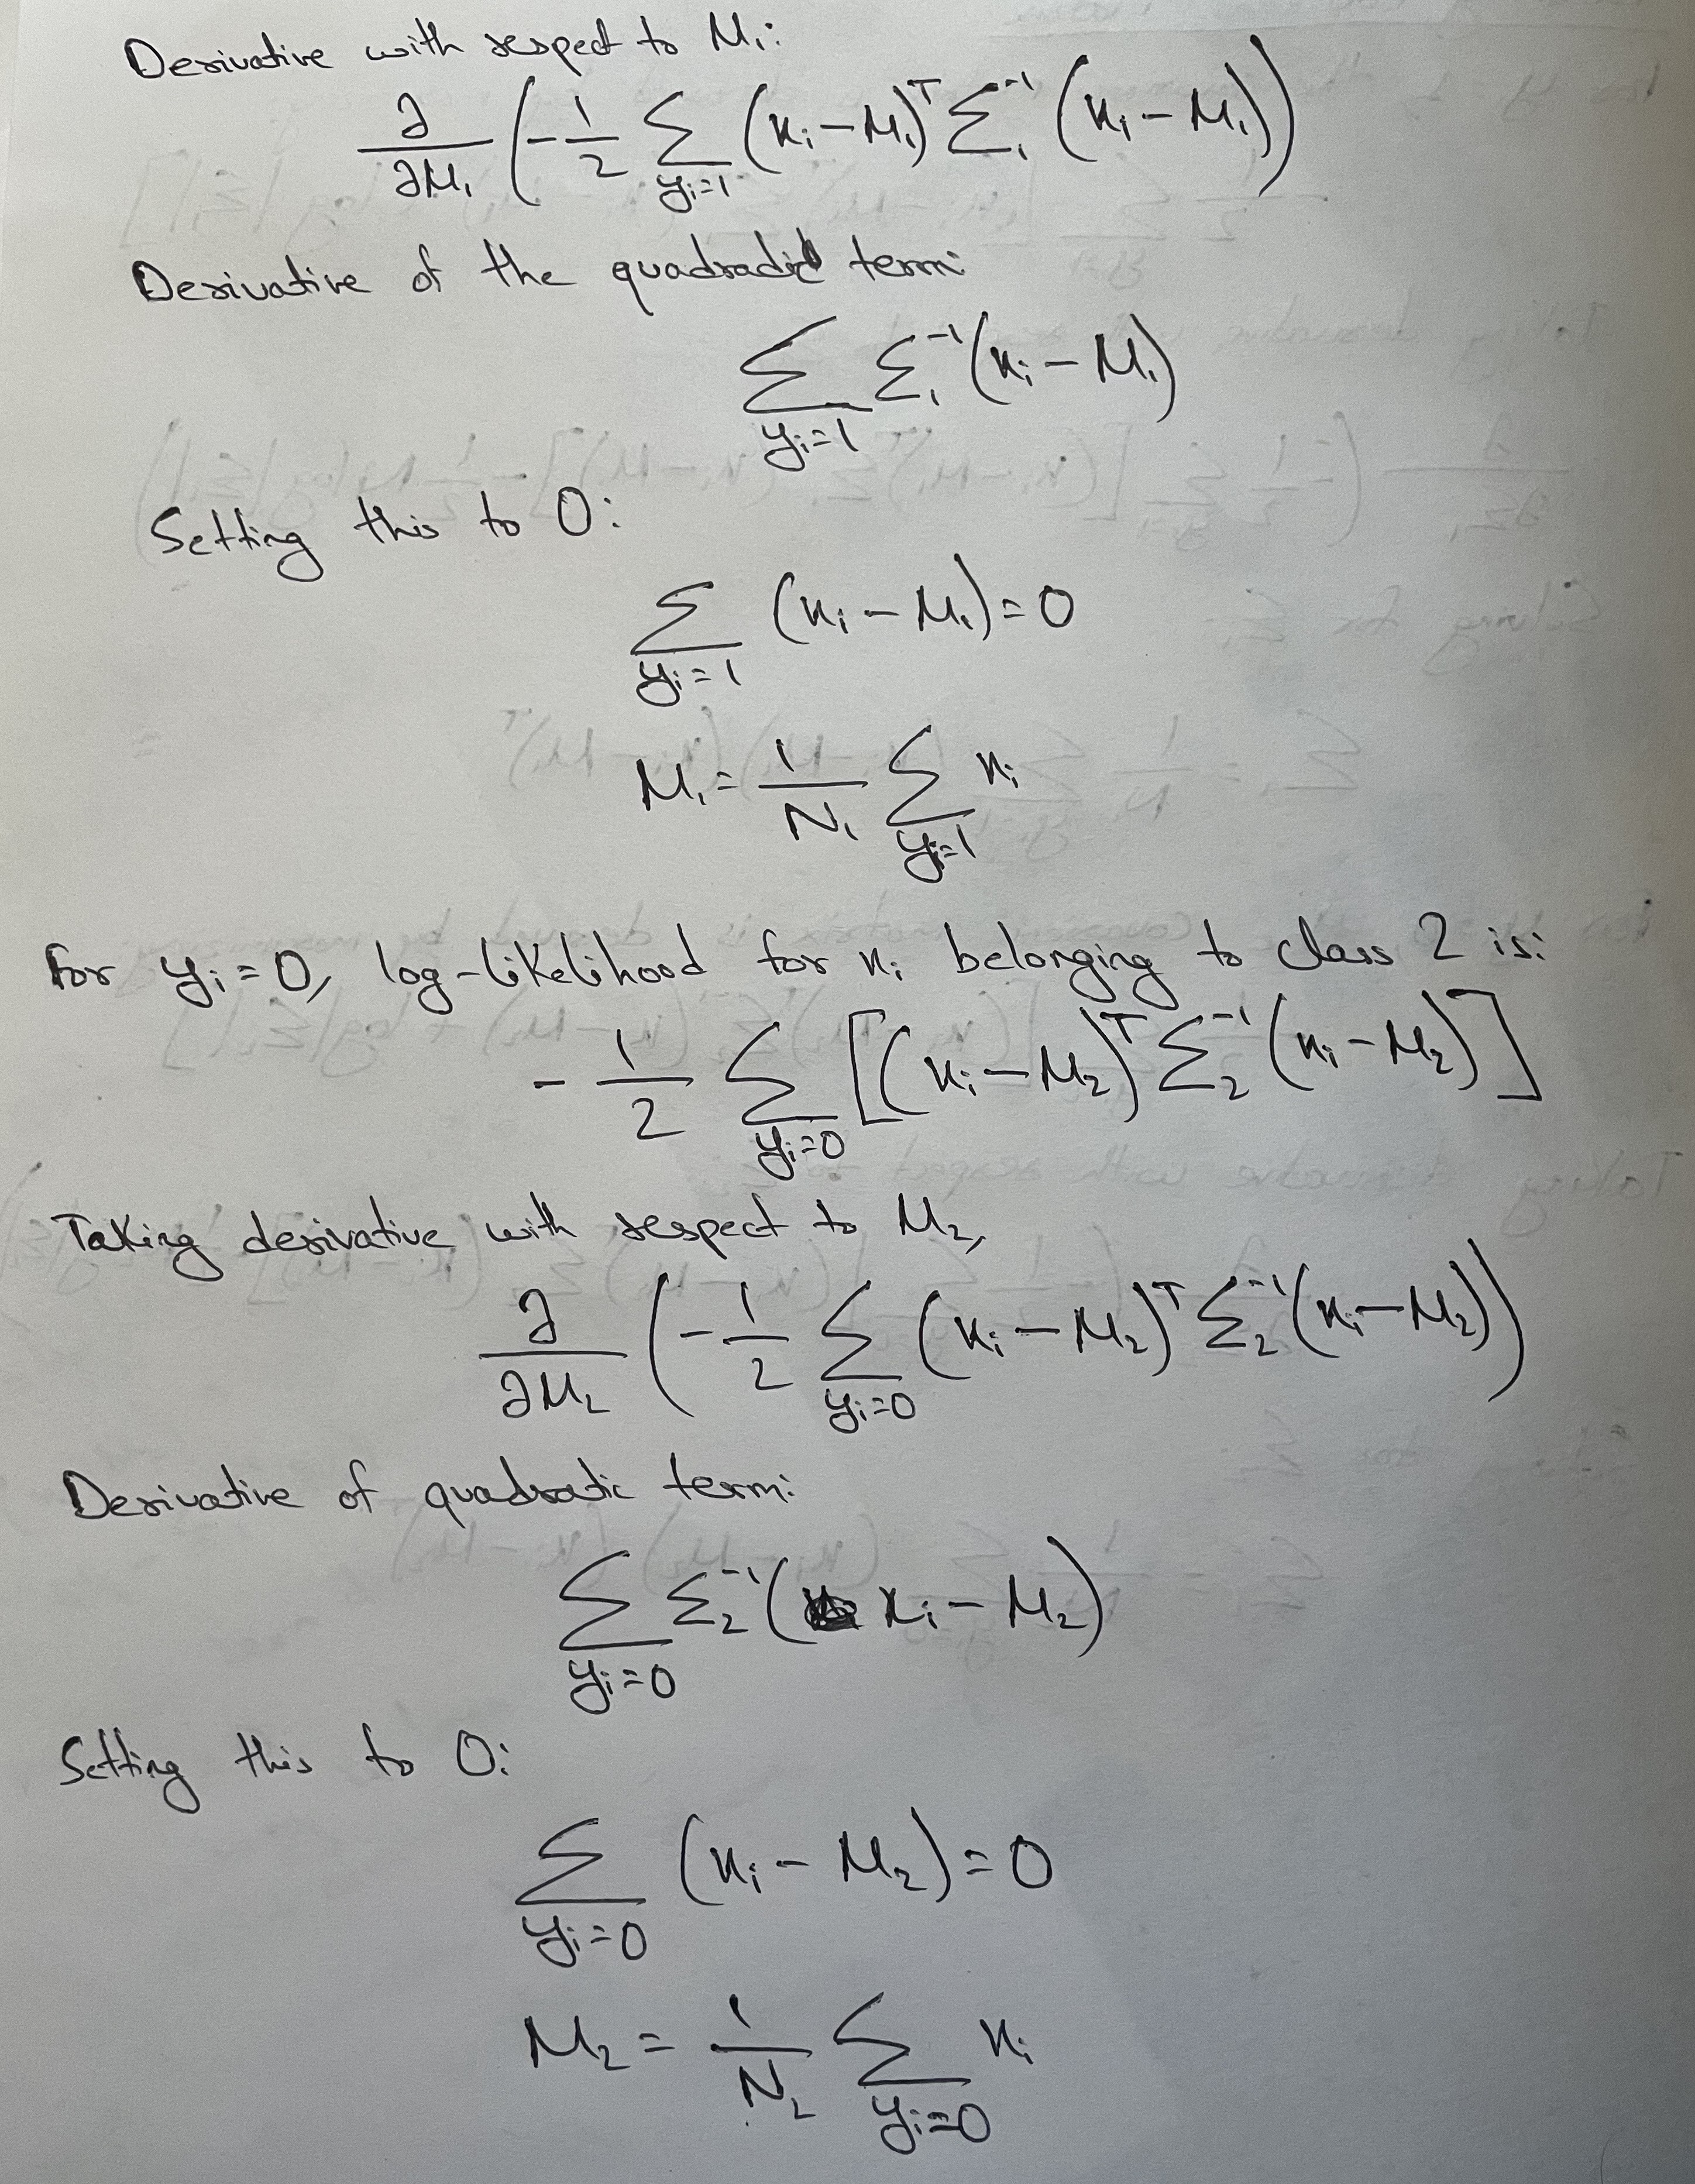 Derivative with respect to μ₁:
∂/∂μ₁ (-1/2 Σ_{yᵢ=1} (xᵢ-μ₁)ᵀ Σ₁⁻¹ (xᵢ-μ₁))
Derivative of the quadradic term:
Σ_{yᵢ=1} Σ₁⁻¹ (xᵢ-μ₁)
Setting this to 0:
Σ_{yᵢ=1} (xᵢ-μ₁)=0
μ₁ = 1/N₁ Σ_{yᵢ=1} xᵢ
For yᵢ=0, log-likelihood for xᵢ belonging to class 2 is:
-1/2 Σ_{yᵢ=0} [(xᵢ-μ₂)ᵀ Σ₂⁻¹ (xᵢ-μ₂)]
Taking derivative with respect to μ₂,
∂/∂μ₂ (-1/2 Σ_{yᵢ=0} (xᵢ-μ₂)ᵀ Σ₂⁻¹ (xᵢ-μ₂))
Derivative of quadratic term:
Σ_{yᵢ=0} Σ₂⁻¹ (xᵢ-μ₂)
Setting this to 0:
Σ_{yᵢ=0} (xᵢ-μ₂)=0
μ₂ = 1/N₂ Σ_{yᵢ=0} xᵢ